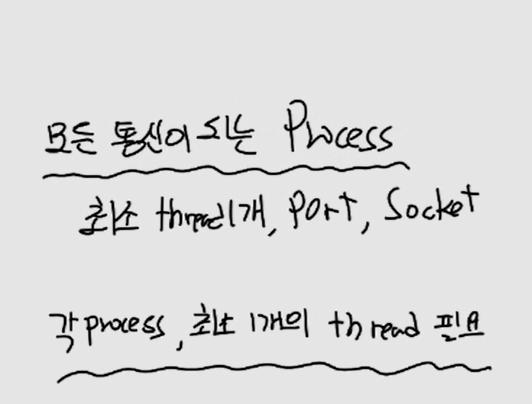 모든 통신이 되는 Process
최소 thread 1개, Port, Socket
각 process, 최소 1개의 thread 필요